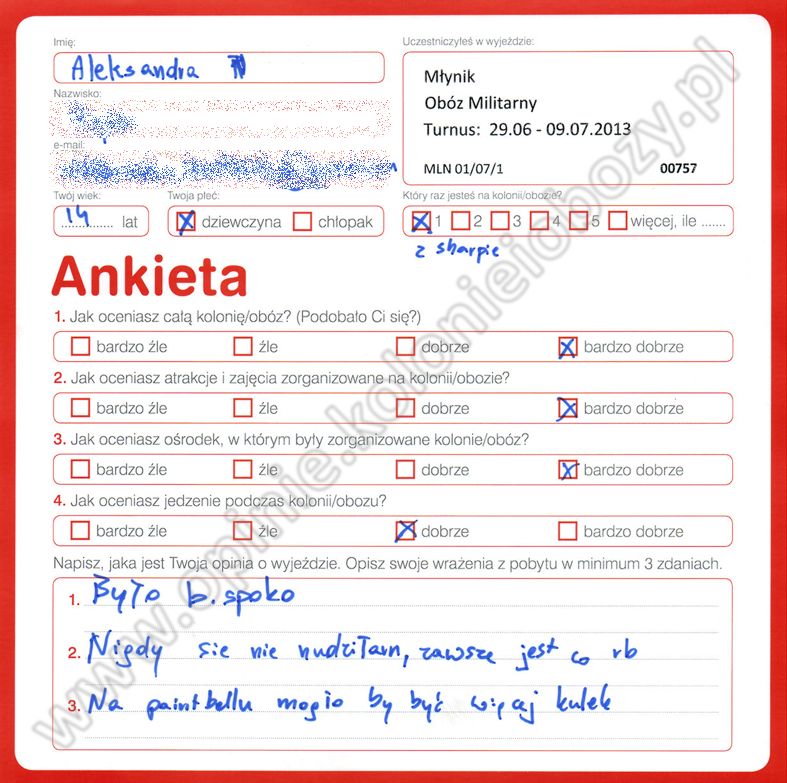 Imię:
Aleksandra
Nazwisko:
e-mail:
Twój wiek:
14 lat
Twoja płeć:
dziewczyna chłopak
Uczestniczyłeś w wyjeździe:
Młynik
Obóz Militarny
Turnus: 29.06 - 09.07.2013
MLN 01/07/1 00757
Który raz jesteś na kolonii/obozie?
1 2 3 4 5 więcej, ile .......
z sharpie
Ankieta
1. Jak oceniasz całą kolonię/obóz? (Podobało Ci się?)
bardzo źle źle dobrze bardzo dobrze
2. Jak oceniasz atrakcje i zajęcia zorganizowane na kolonii/obozie?
bardzo źle źle dobrze bardzo dobrze
3. Jak oceniasz ośrodek, w którym były zorganizowane kolonie/obóz?
bardzo źle źle dobrze bardzo dobrze
4. Jak oceniasz jedzenie podczas kolonii/obozu?
bardzo źle źle dobrze bardzo dobrze
Napisz, jaka jest Twoja opinia o wyjeździe. Opisz swoje wrażenia z pobytu w minimum 3 zdaniach.
1. Było b. spoko
2. Nigdy sie nie nudziłam, zawsze jest co rb
3. Na paintbellu mogło by być więcej kulek
www.opinie.kolonieiobozy.pl